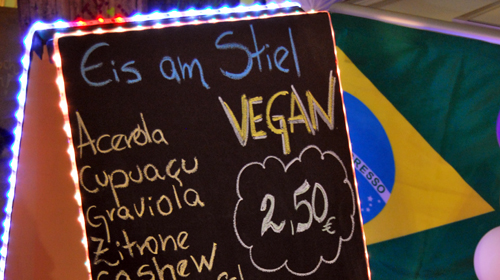 Eis am Stiel
VEGAN
Acerola
Cupuaçu
Graviola
Zitrone
Cashew
2,50 €
RESSO